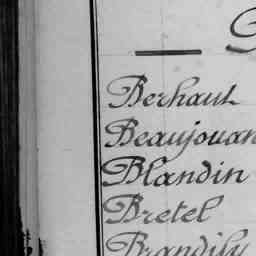 Berhaut
Beaujouan
Blandin
Bretel
Brandily